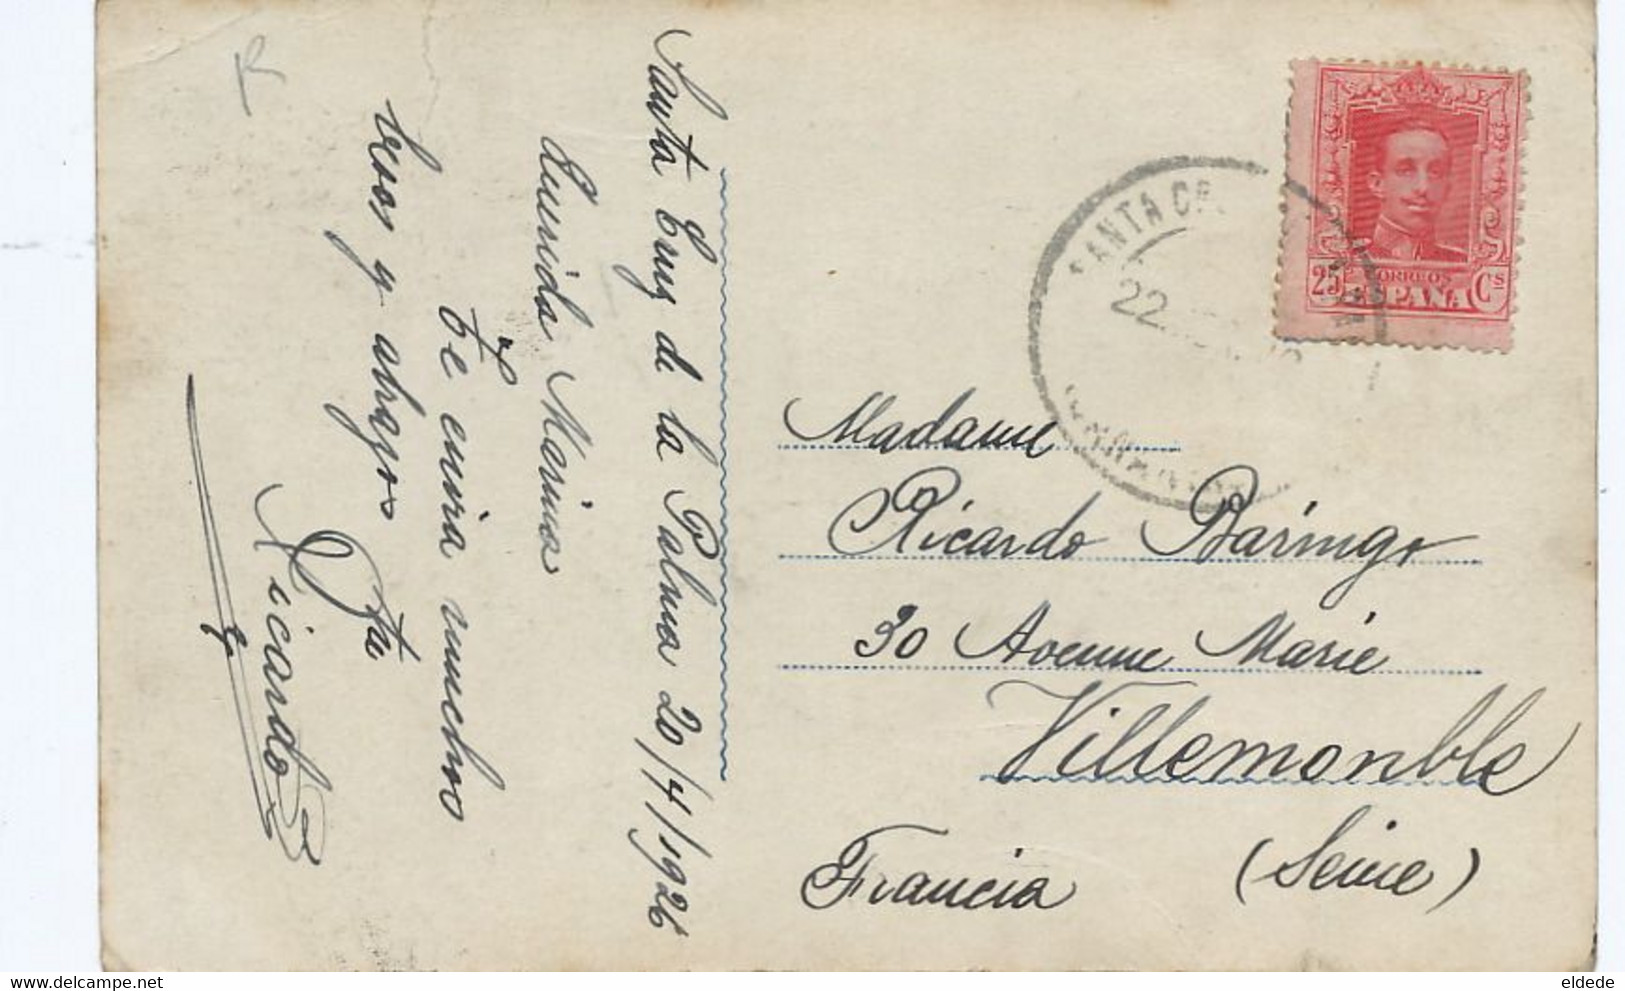 Santa Cruz de la Palma 20/4/1926
Querida Marina
Te envia muchos
besos y abrazos
tu
Ricardo
25 Cs
CORREOS
ESPAÑA
SANTA CR
22
Madame
Ricardo Baringo
30 Avenue Marie
Villemonble
(Seine)
Francia
www.delcampe.net
eldede